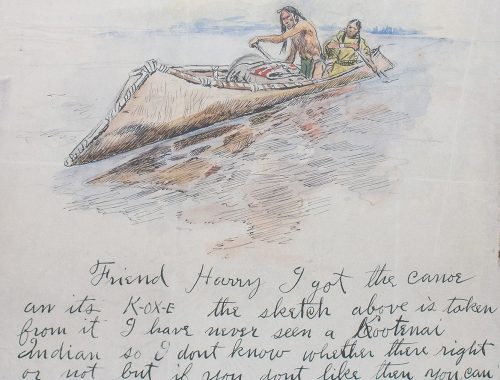 Friend Harry I got the canoe
an its K-OX-E the sketch above is taken
from it I have never seen a Kootenai
Indian so I dont know whether there right
or not but if you dont like them you can